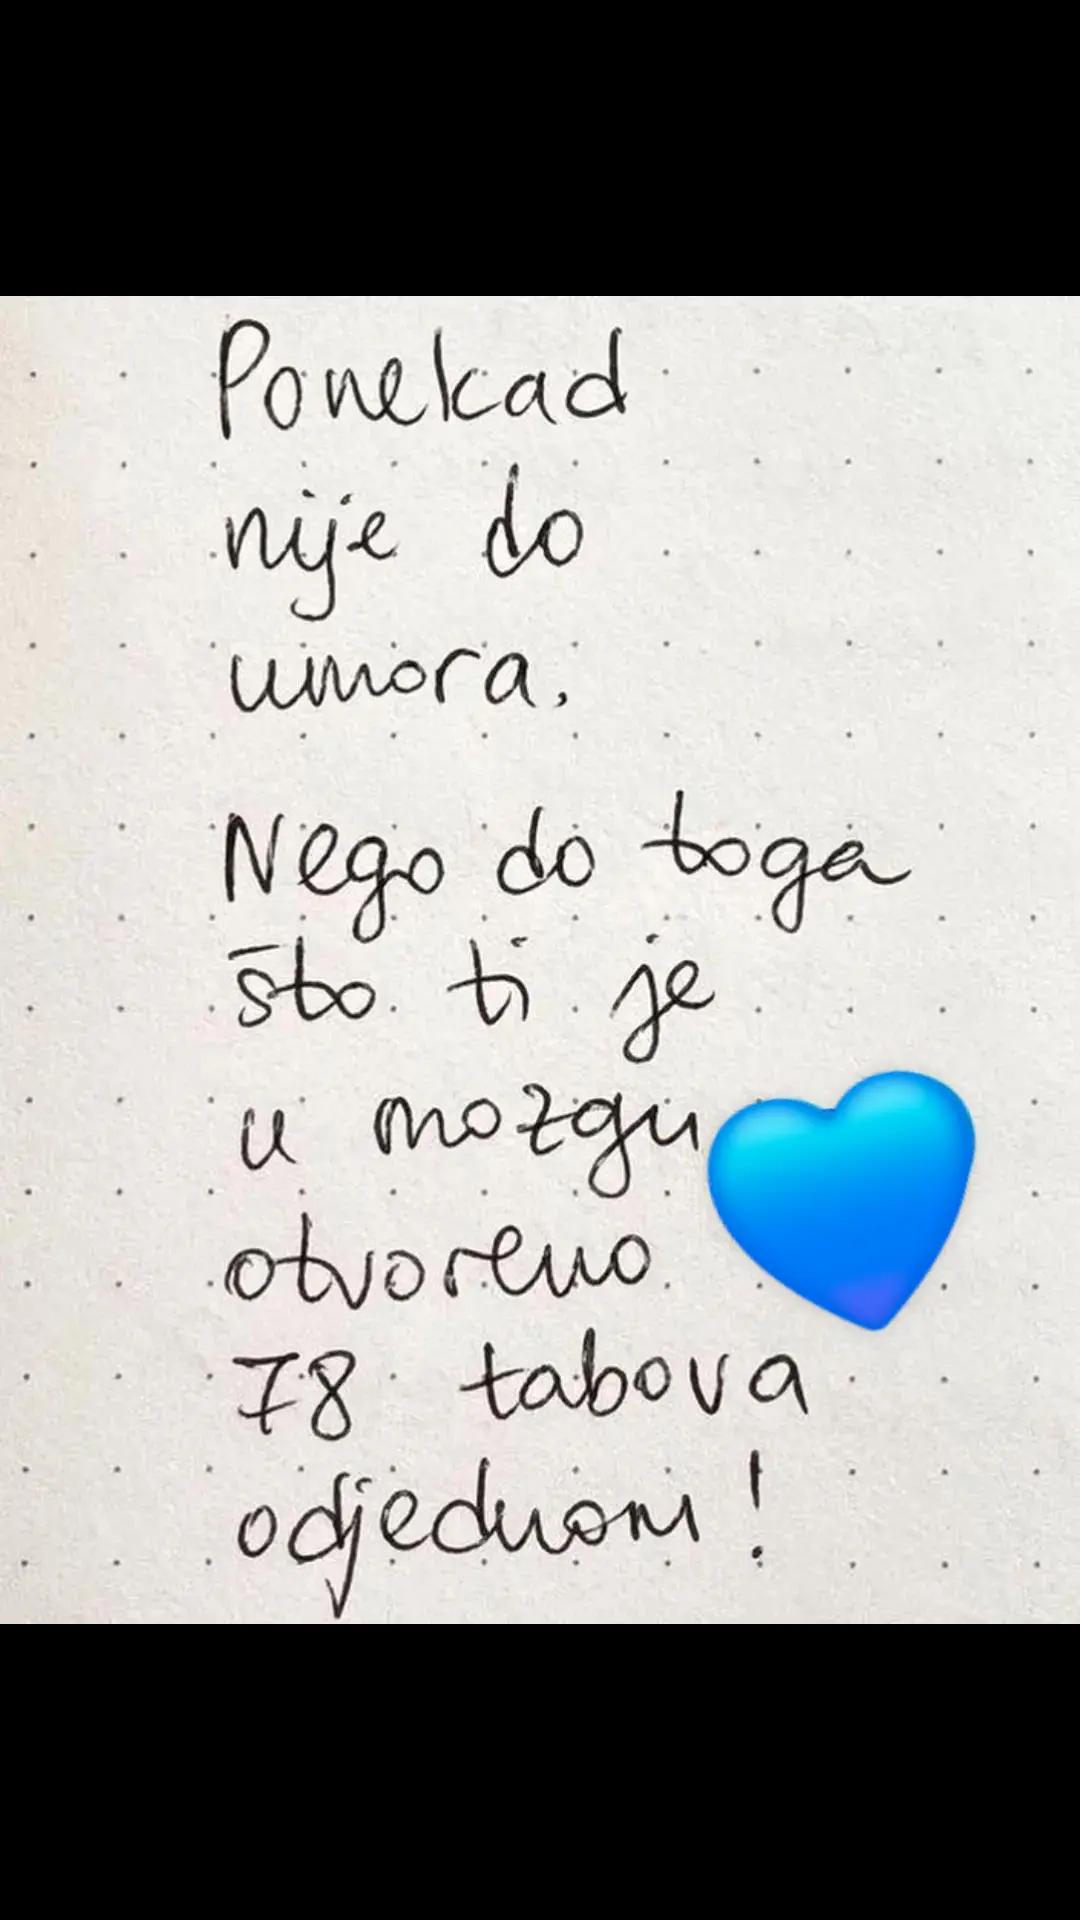 Ponekad
nije do
umora.
Nego do toga
što ti je
u mozgu
otvoreno
78 tabova
odjednom!